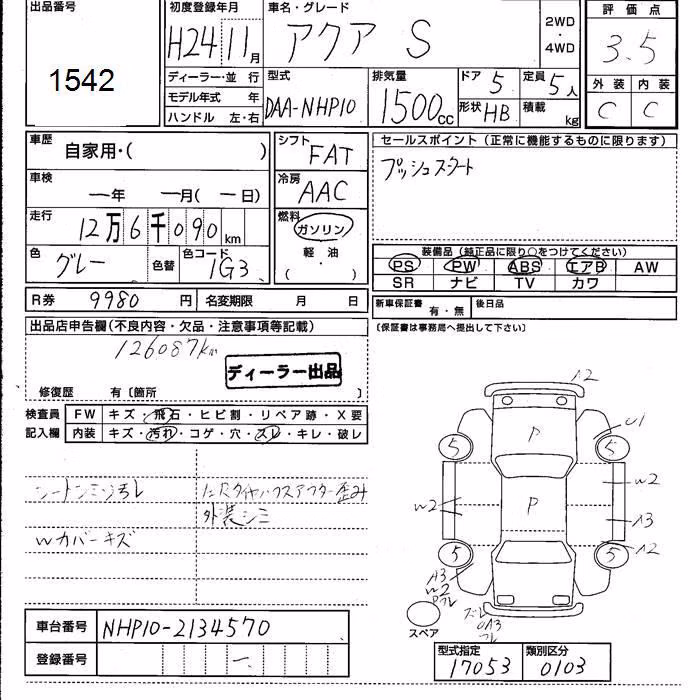 出品番号
1542
初度登録年月
H24 11月
車名・グレード
アクア S
2WD
・
4WD
評価点
3.5
ディーラー・並 行
モデル年式 年
ハンドル 左・右
型式
DAA-NHP10
排気量
1500cc
ドア 5
形状 HB
定員 5人
積載 kg
外装 内装
C C
車歴
自家用・( )
車検
―年 ―月(―日)
走行
12万6千090km
色
グレー
色替
色コード
1G3
シフト
FAT
冷房
AAC
燃料
ガソリン
軽・油
( )
セールスポイント (正常に機能するものに限ります)
プッシュスタート
装備品(純正品に限り○をつけてください)
PS PW ABS エアB AW
SR ナビ TV カワ
R券 9980 円 名変期限 月 日
新車保証書 有・無 後日品
(保証書は事務局へ提出して下さい)
出品店申告欄(不良内容・欠品・注意事項等記載)
126087km
ディーラー出品
修復歴 有〔箇所 〕
検査員 FW キズ・飛石・ヒビ割・リペア跡・X要
記入欄 内装 キズ・汚れ・コゲ・穴・スレ・キレ・破レ
シートシミ汚レ
Wカバーキズ
外装シミ
A2
U1
5
5
P
W2
W2
P
A3
5
5
A2
A3
W2
スペア
車台番号 NHP10-2134570
登録番号 ―
型式指定 類別区分
17053 0103